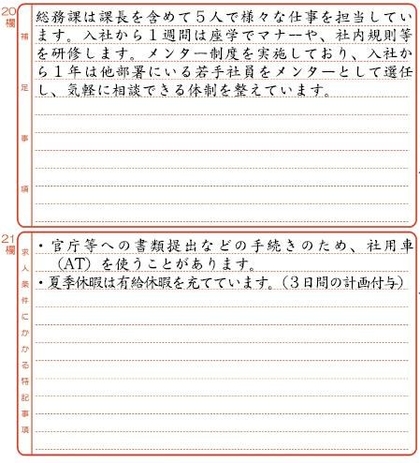 20
欄
補足事項
総務課は課長を含めて5人で様々な仕事を担当してい
ます。入社から1週間は座学でマナーや、社内規則等
を研修します。メンター制度を実施しており、入社か
ら1年は他部署にいる若手社員をメンターとして選任
し、気軽に相談できる体制を整えています。
21
欄
求人条件にかかる特記事項
・官庁等への書類提出などの手続きのため、社用車
（AT）を使うことがあります。
・夏季休暇は有給休暇を充てています。（3日間の計画付与）